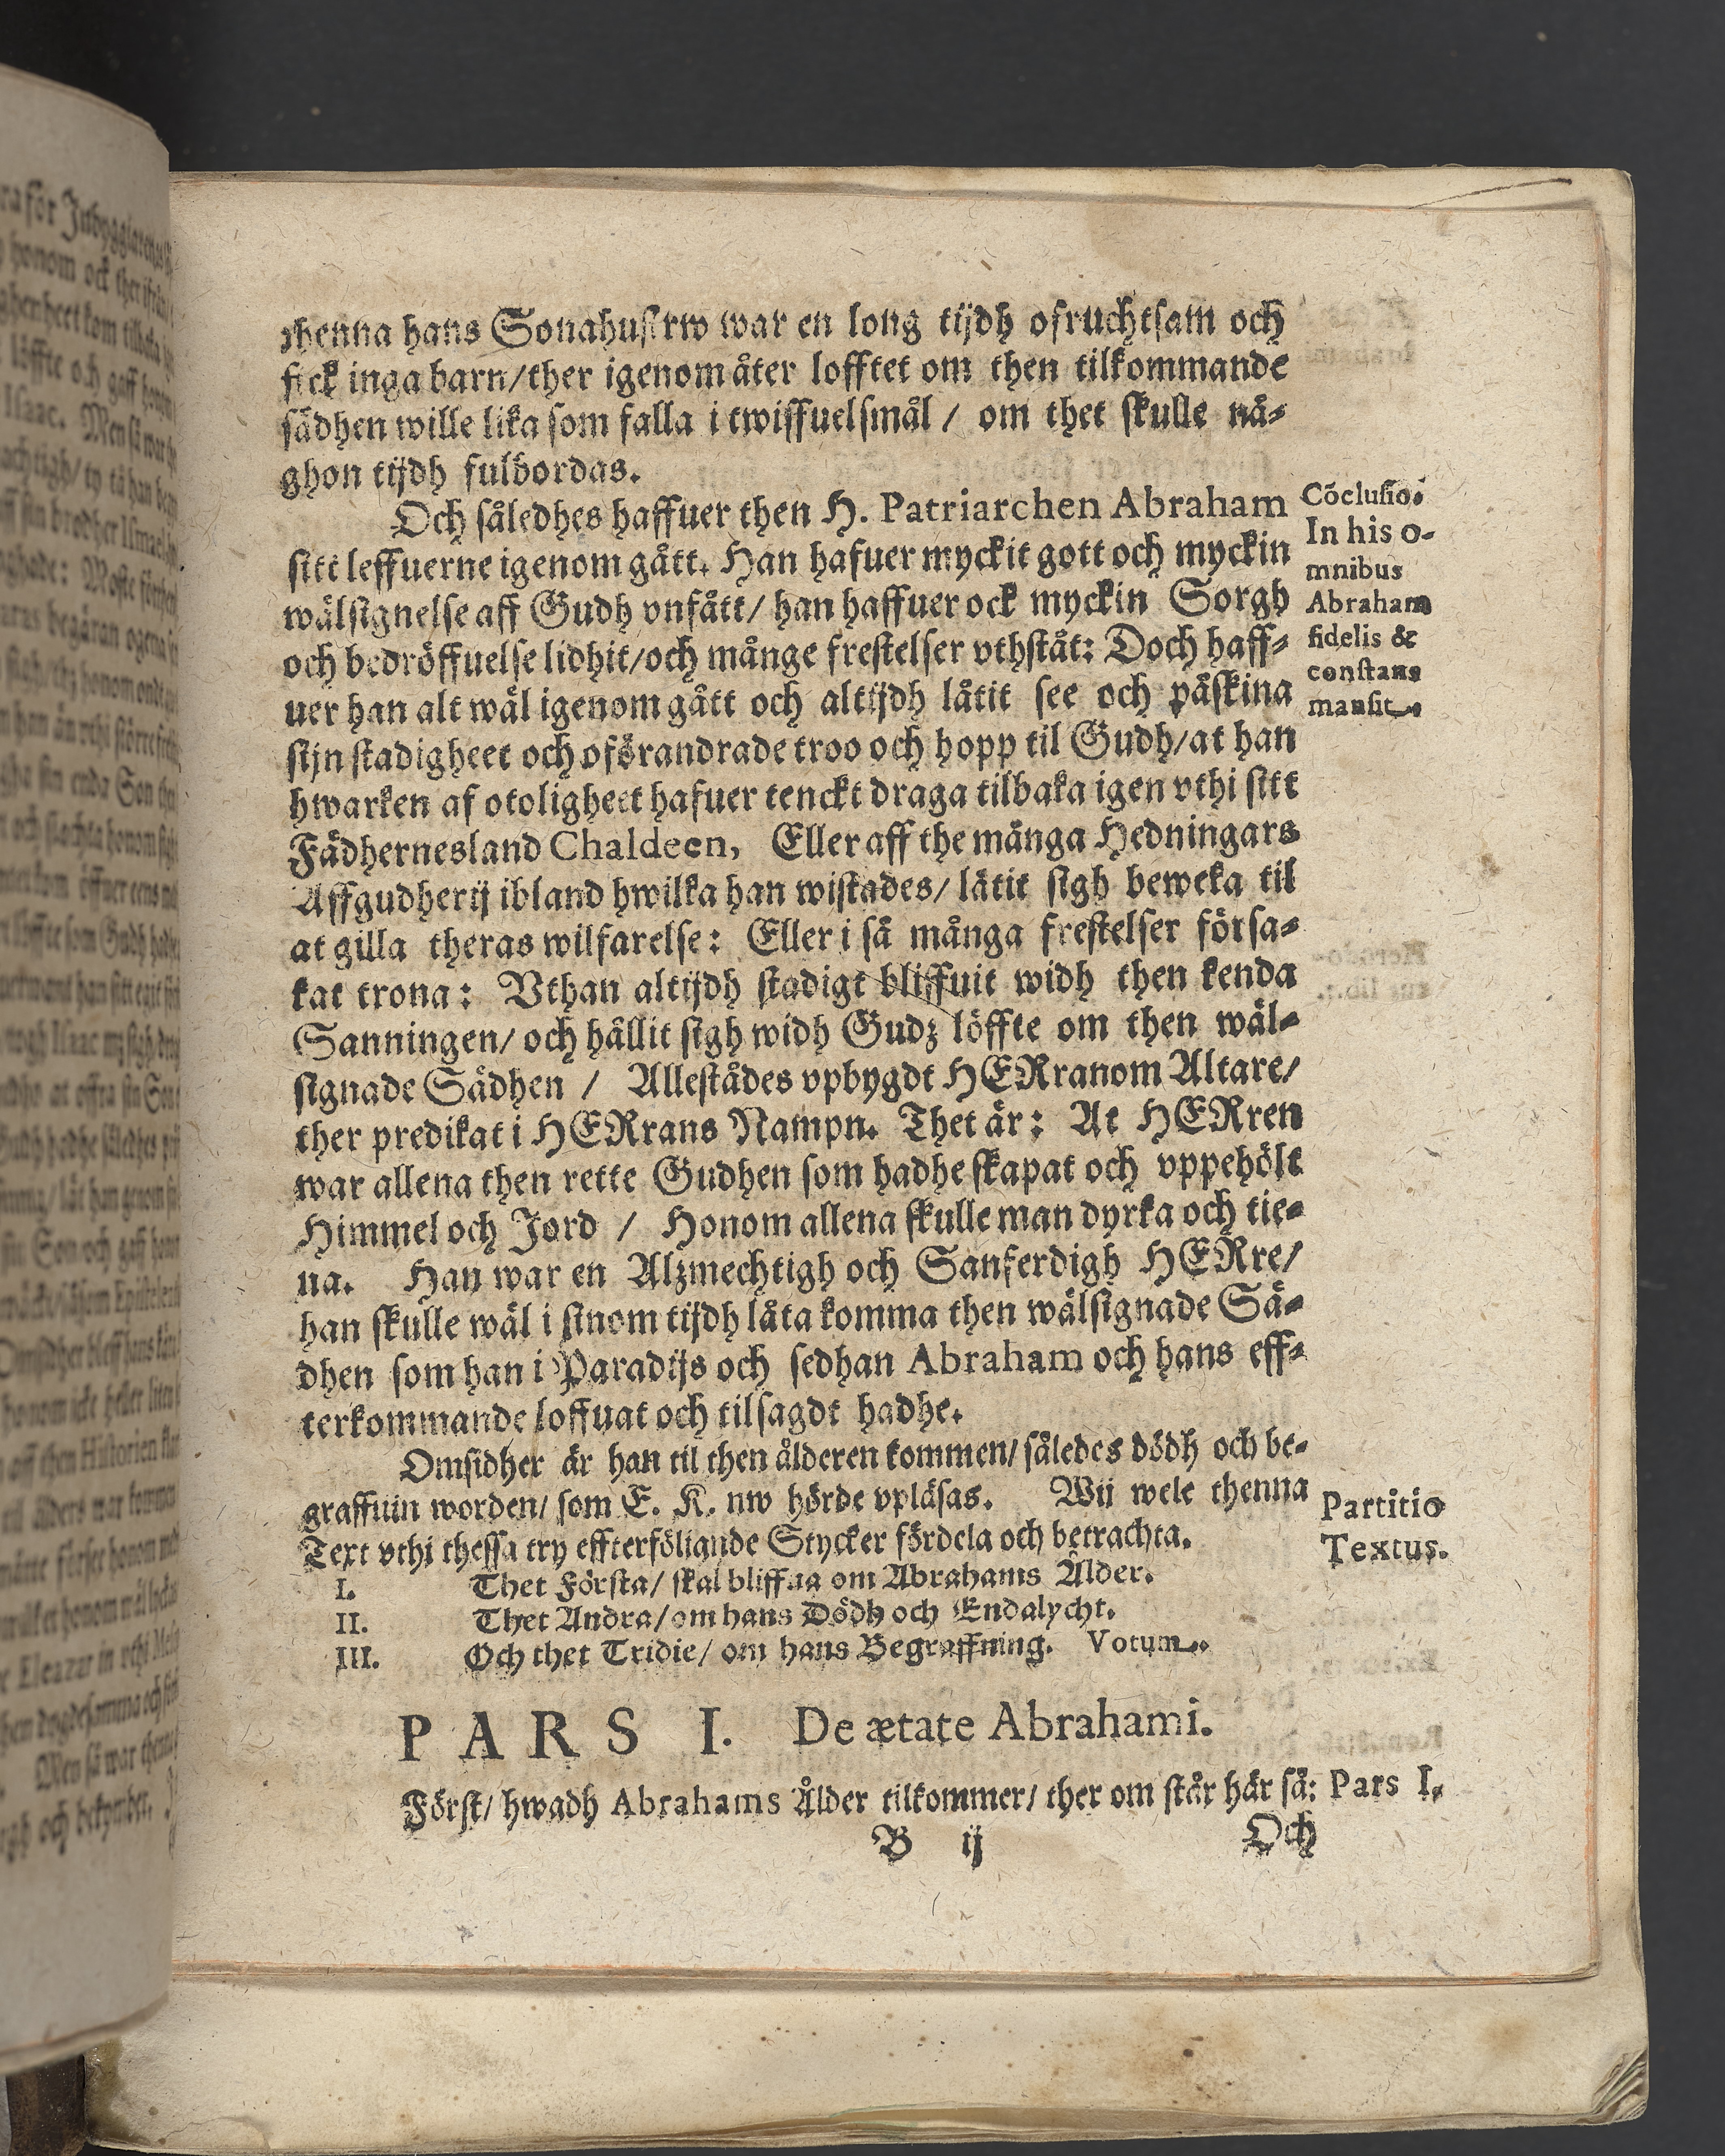 thenna hans Sonahustrw war en long tijdh ofruchtsam och
fick inga barn/ther igenom åter lofftet om then tilkommande
sädhen wille lika som falla i twiffuelsmål / om thet skulle nå-
ghon tijdh fulbordas.
Och såledhes haffuer then H. Patriarchen Abraham
sitt leffuerne igenom gått. Han hafuer myckit gott och myckin
wälsignelse aff Gudh vnfått/ han haffuer ock myckin Sorgh
och bedröffuelse lidhit/och månge frestelser vthståt: Doch haff-
uer han alt wäl igenom gått och altijdh låtit see och påskina
sijn stadigheet och oförandrade troo och hopp til Gudh/at han
hwarken af otoligheet hafuer tenckt draga tilbaka igen vthi sitt
Fädhernesland Chaldeen, Eller aff the många Hedningars
Affgudherij ibland hwilka han wistades/ låtit sigh beweka til
at gilla theras wilfarelse: Eller i så många frestelser försa-
kat trona: Vthan altijdh stadigt bliffuit widh then kenda
Sanningen/ och hållit sigh widh Gudz löffte om then wäl-
signade Sädhen / Allestådes vpbygdt HERranom Altare/
ther predikat i HERrans Nampn. Thet är: At HERren
war allena then rette Gudhen som hadhe skapat och vppehölt
Himmel och Jord / Honom allena skulle man dyrka och tie-
na. Han war en Alzmechtigh och Sanferdigh HERre/
han skulle wäl i sinom tijdh låta komma then wälsignade Sä-
dhen som han i Paradijs och sedhan Abraham och hans eff-
terkommande loffuat och tilsagdt hadhe.
Omsidher är han til then ålderen kommen/ således dödh och be-
graffuin worden/ som E. K. nw hörde vpläsas. Wij wele thenna
Text vthi thessa try effterföliande Stycker fördela och betrachta.
I. Thet Första/ skal bliffua om Abrahams Ålder.
II. Thet Andra/om hans Dödh och Endalycht.
III. Och thet Tridie/ om hans Begraffning. Votum.
PARS I. De ætate Abrahami.
Först/ hwadh Abrahams Ålder tilkommer/ ther om står här så:
B ij
Och
Cõclusio.
In his o-
mnibus
Abraham
fidelis &
constans
mansit.
Partitio
Textus.
Pars I.